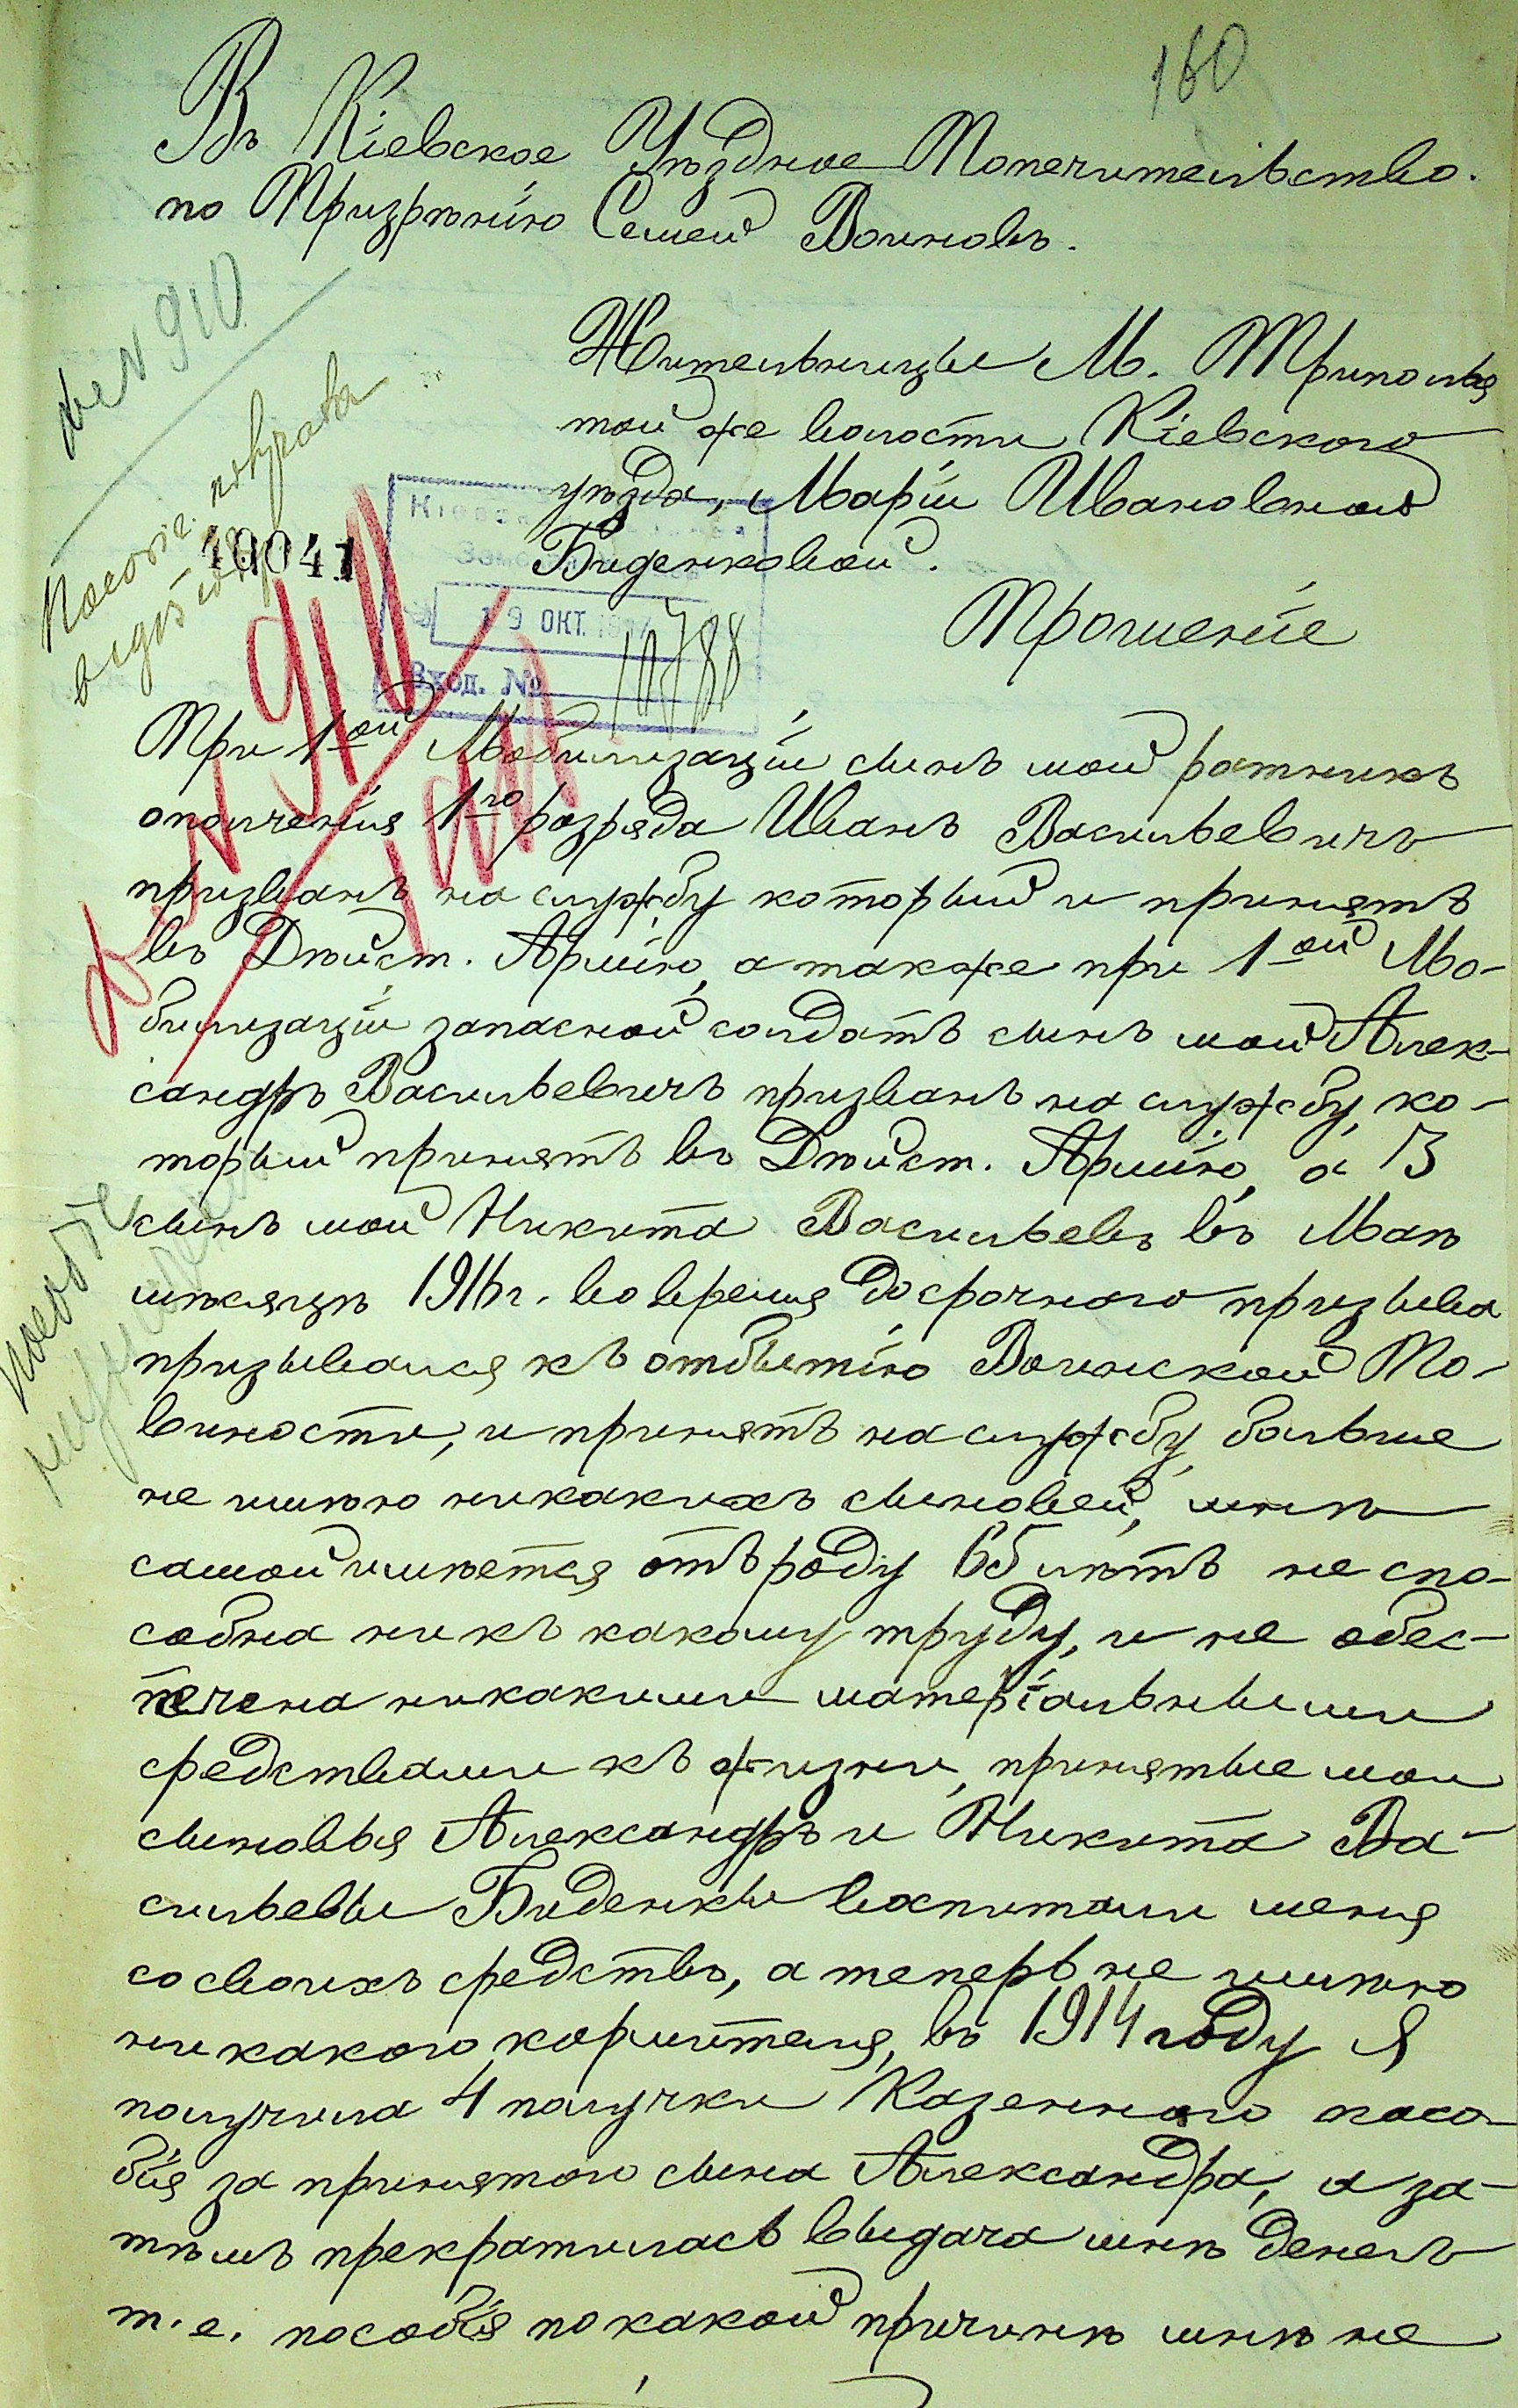 160
Въ Кіевское Уѣздное Попечительство.
по Призрѣнію Семей Воиновъ.
№ 910
Жительницы М. Триполья
той же волости Кіевскаго
уѣзда, Маріи Ивановной
Биденковой.
19041
19 ОКТ.
Вход. №
10788
Прошеніе
910
При 1ой Мобилизаціи сынъ мой ратникъ
ополченія 1го розряда Иванъ Васильевичъ
призванъ на службу который и принятъ
въ Дѣйст. Армію, а также при 1ой Мо-
билизаціи запасной солдатъ сынъ мой Алек-
сандръ Васильевичъ призванъ на службу, ко-
торый принятъ въ Дѣйст. Армію, а 3
сынъ мой Никита Васильевъ въ Маѣ
мѣсяцѣ 191 г. во время досрочного призыва
призывался къ отбытію Воинской По-
винности, и принятъ на службу, больше
не имѣю никакихъ сыновей, мнѣ
самой имѣется отъ роду 65 лѣтъ не спо-
собна никъ какому труду, и не обес-
печена никакими матеріальными
средствами къ жизни, принятые мои
сыновья Александръ и Никита Ва-
сильевы Биденки воспитали меня
со своихъ средствъ, а теперь не имѣю
никакого кормителя, въ 1914 году я
получила 4 получки Казенного посо-
бія за принятого сына Александра, а за-
тѣмъ прекратилась выдача мнѣ денегъ
т. е. пособія по какой причинѣ мнѣ не
Пособіе